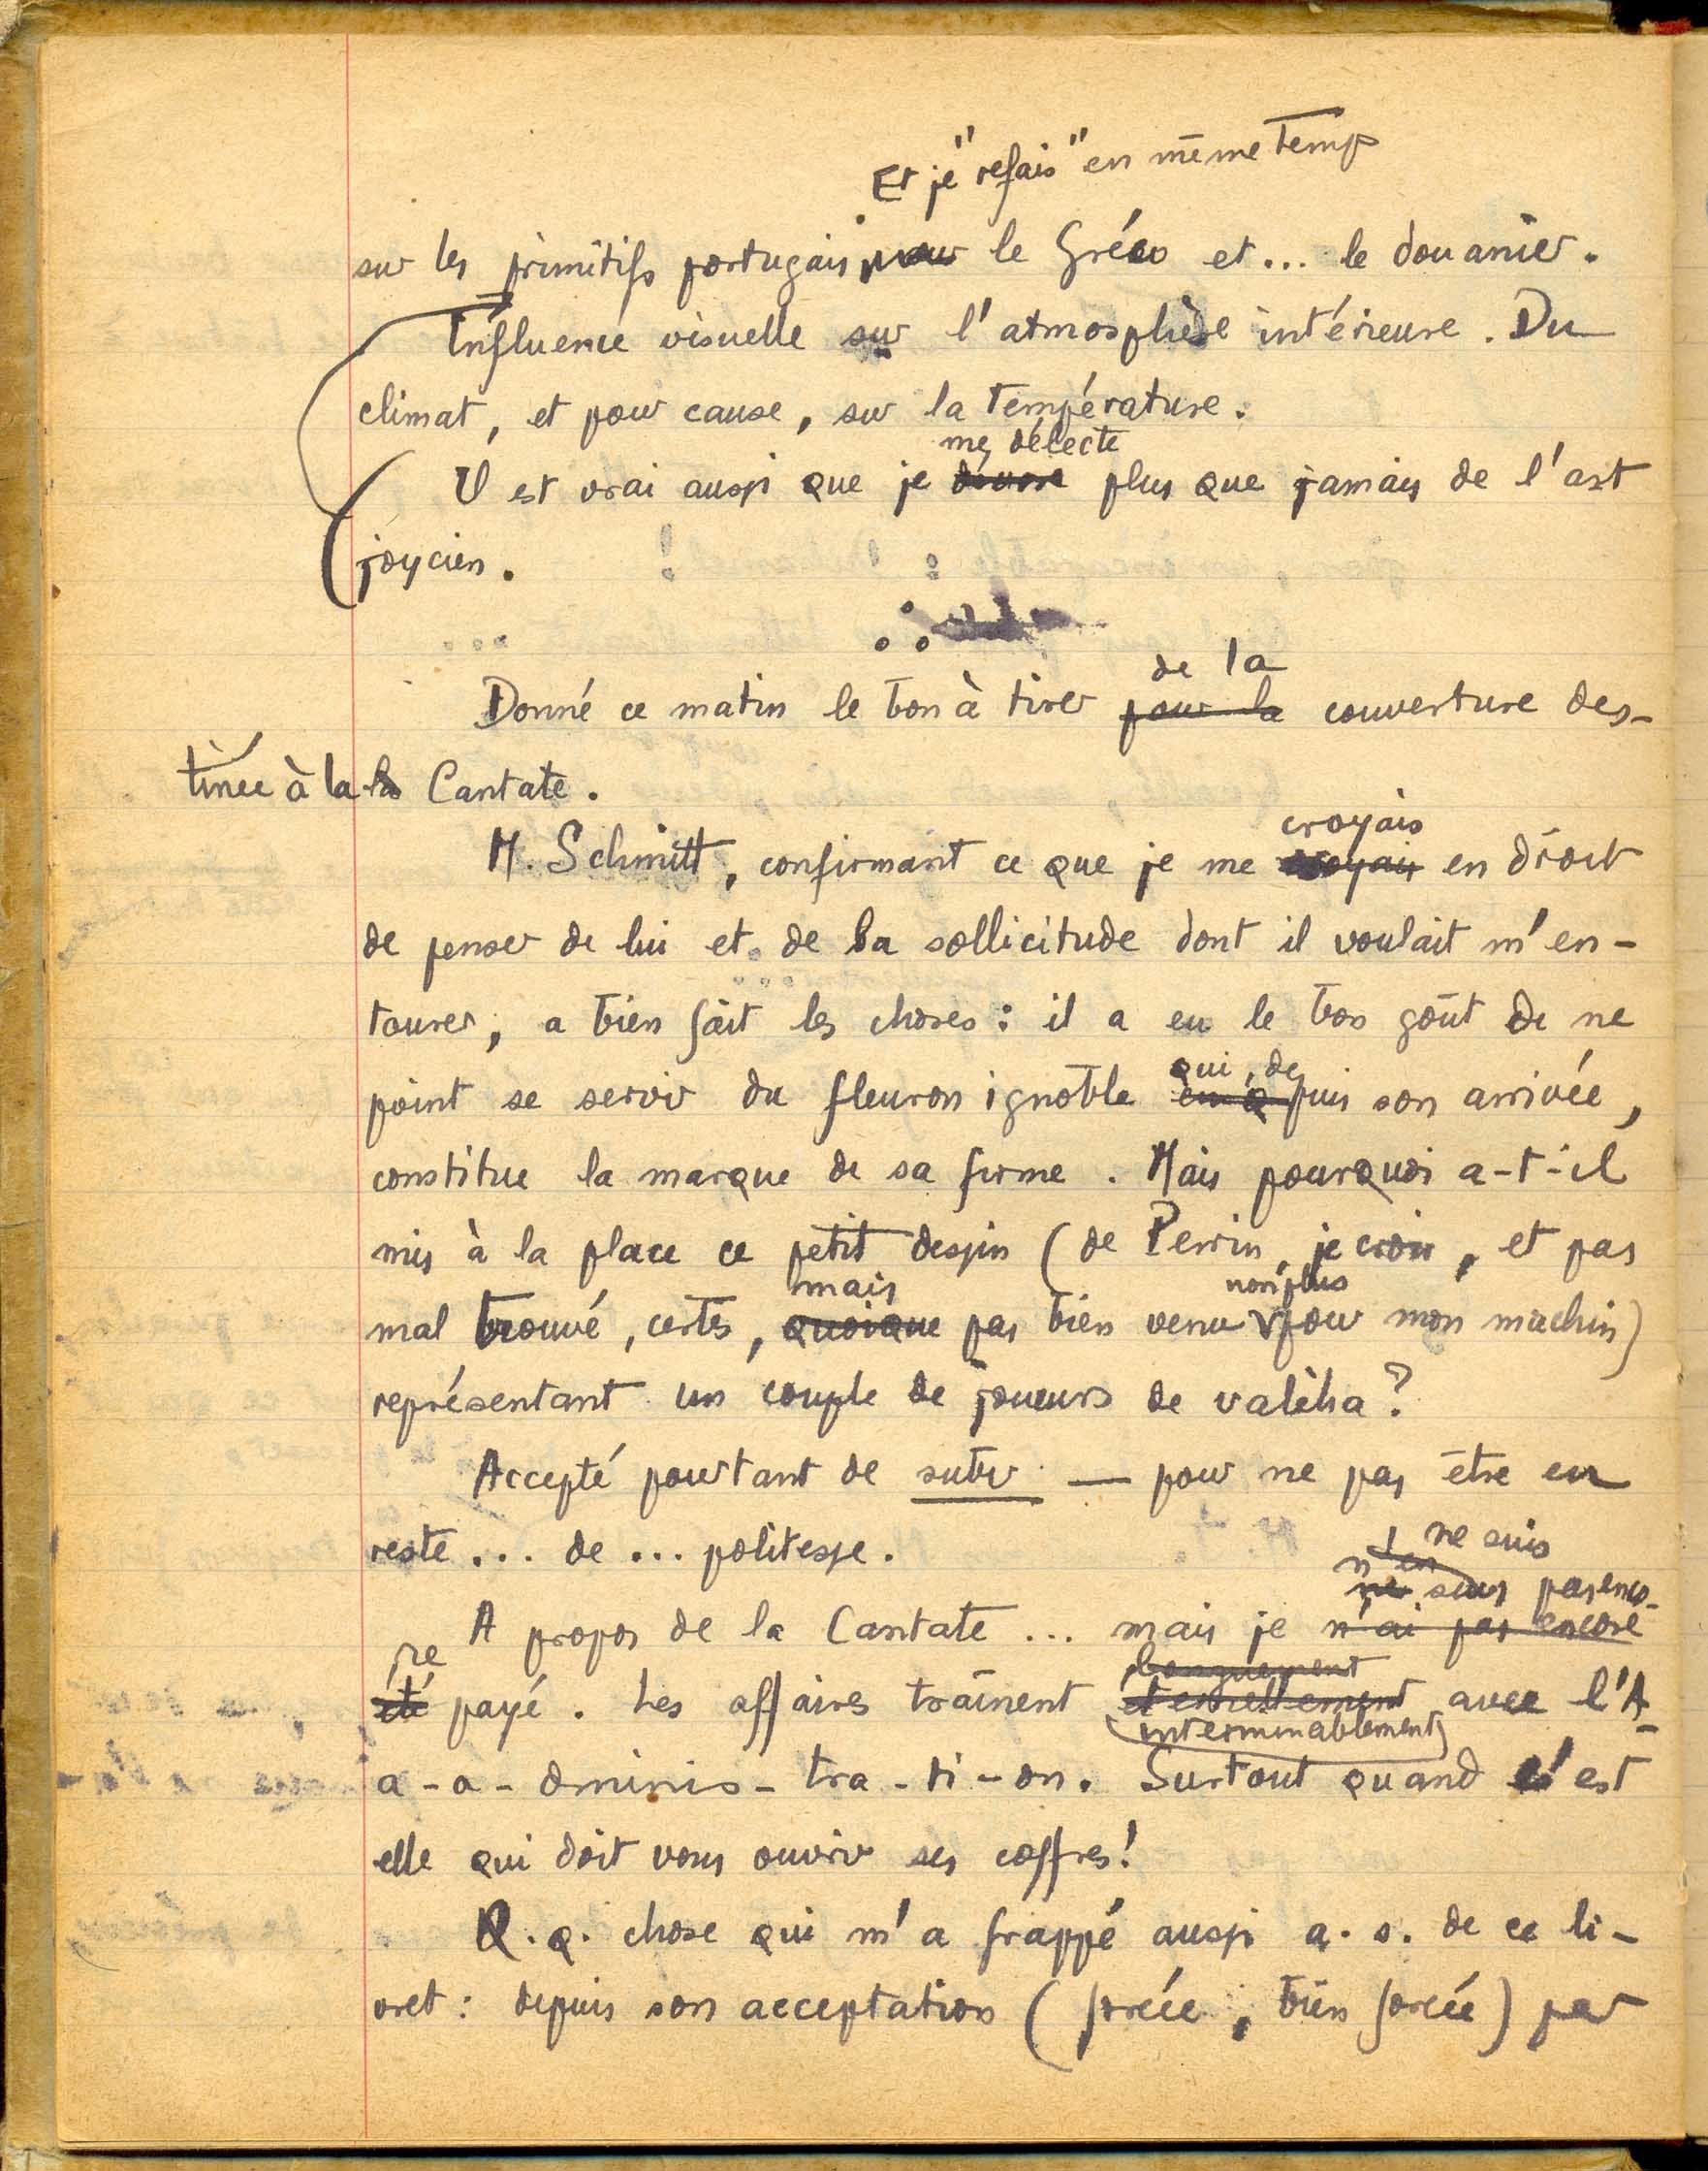 Et je "refais" en même temps
sur les primitifs portugais, pour le Gréco et... le douanier.
Influence visuelle sur l'atmosphère intérieure. Du
climat, et pour cause, sur la température.
me délecte
Il est vrai aussi que je dévore plus que jamais de l'art
joycien.
de la
Donné ce matin le bon à tirer pour la couverture des-
tinée à la la Cantate.
croyais
M. Schmitt, confirmant ce que je me croyais en droit
de penser de lui et de la sollicitude dont il voulait m'en-
tourer, a bien fait les choses : il a eu le bon goût de ne
qui, de
point se servir du fleuron ignoble puis son arrivée,
constitue la marque de sa firme. Mais pourquoi a-t-il
mis à la place ce petit dessin (de Perrin, je crois, et pas
mais non plus
mal trouvé, certes, quoique pas bien venu pour mon machin)
représentant un couple de joueurs de valiha ?
Accepté pourtant de subir — pour ne pas être en
reste... de... politesse.
ne suis
n'en
ne suis pas enco-
A propos de la Cantate... mais je n'ai pas encore
re
longuement
été payé. Les affaires traînent éternellement avec l'A-
interminablement
a-a-dminis-tra-ti-on. Surtout quand c'est
elle qui doit vous ouvrir ses coffres !
Q.q. chose qui m'a frappé aussi a. s. de ce li-
vret : depuis son acceptation (forcée, bien forcée) par